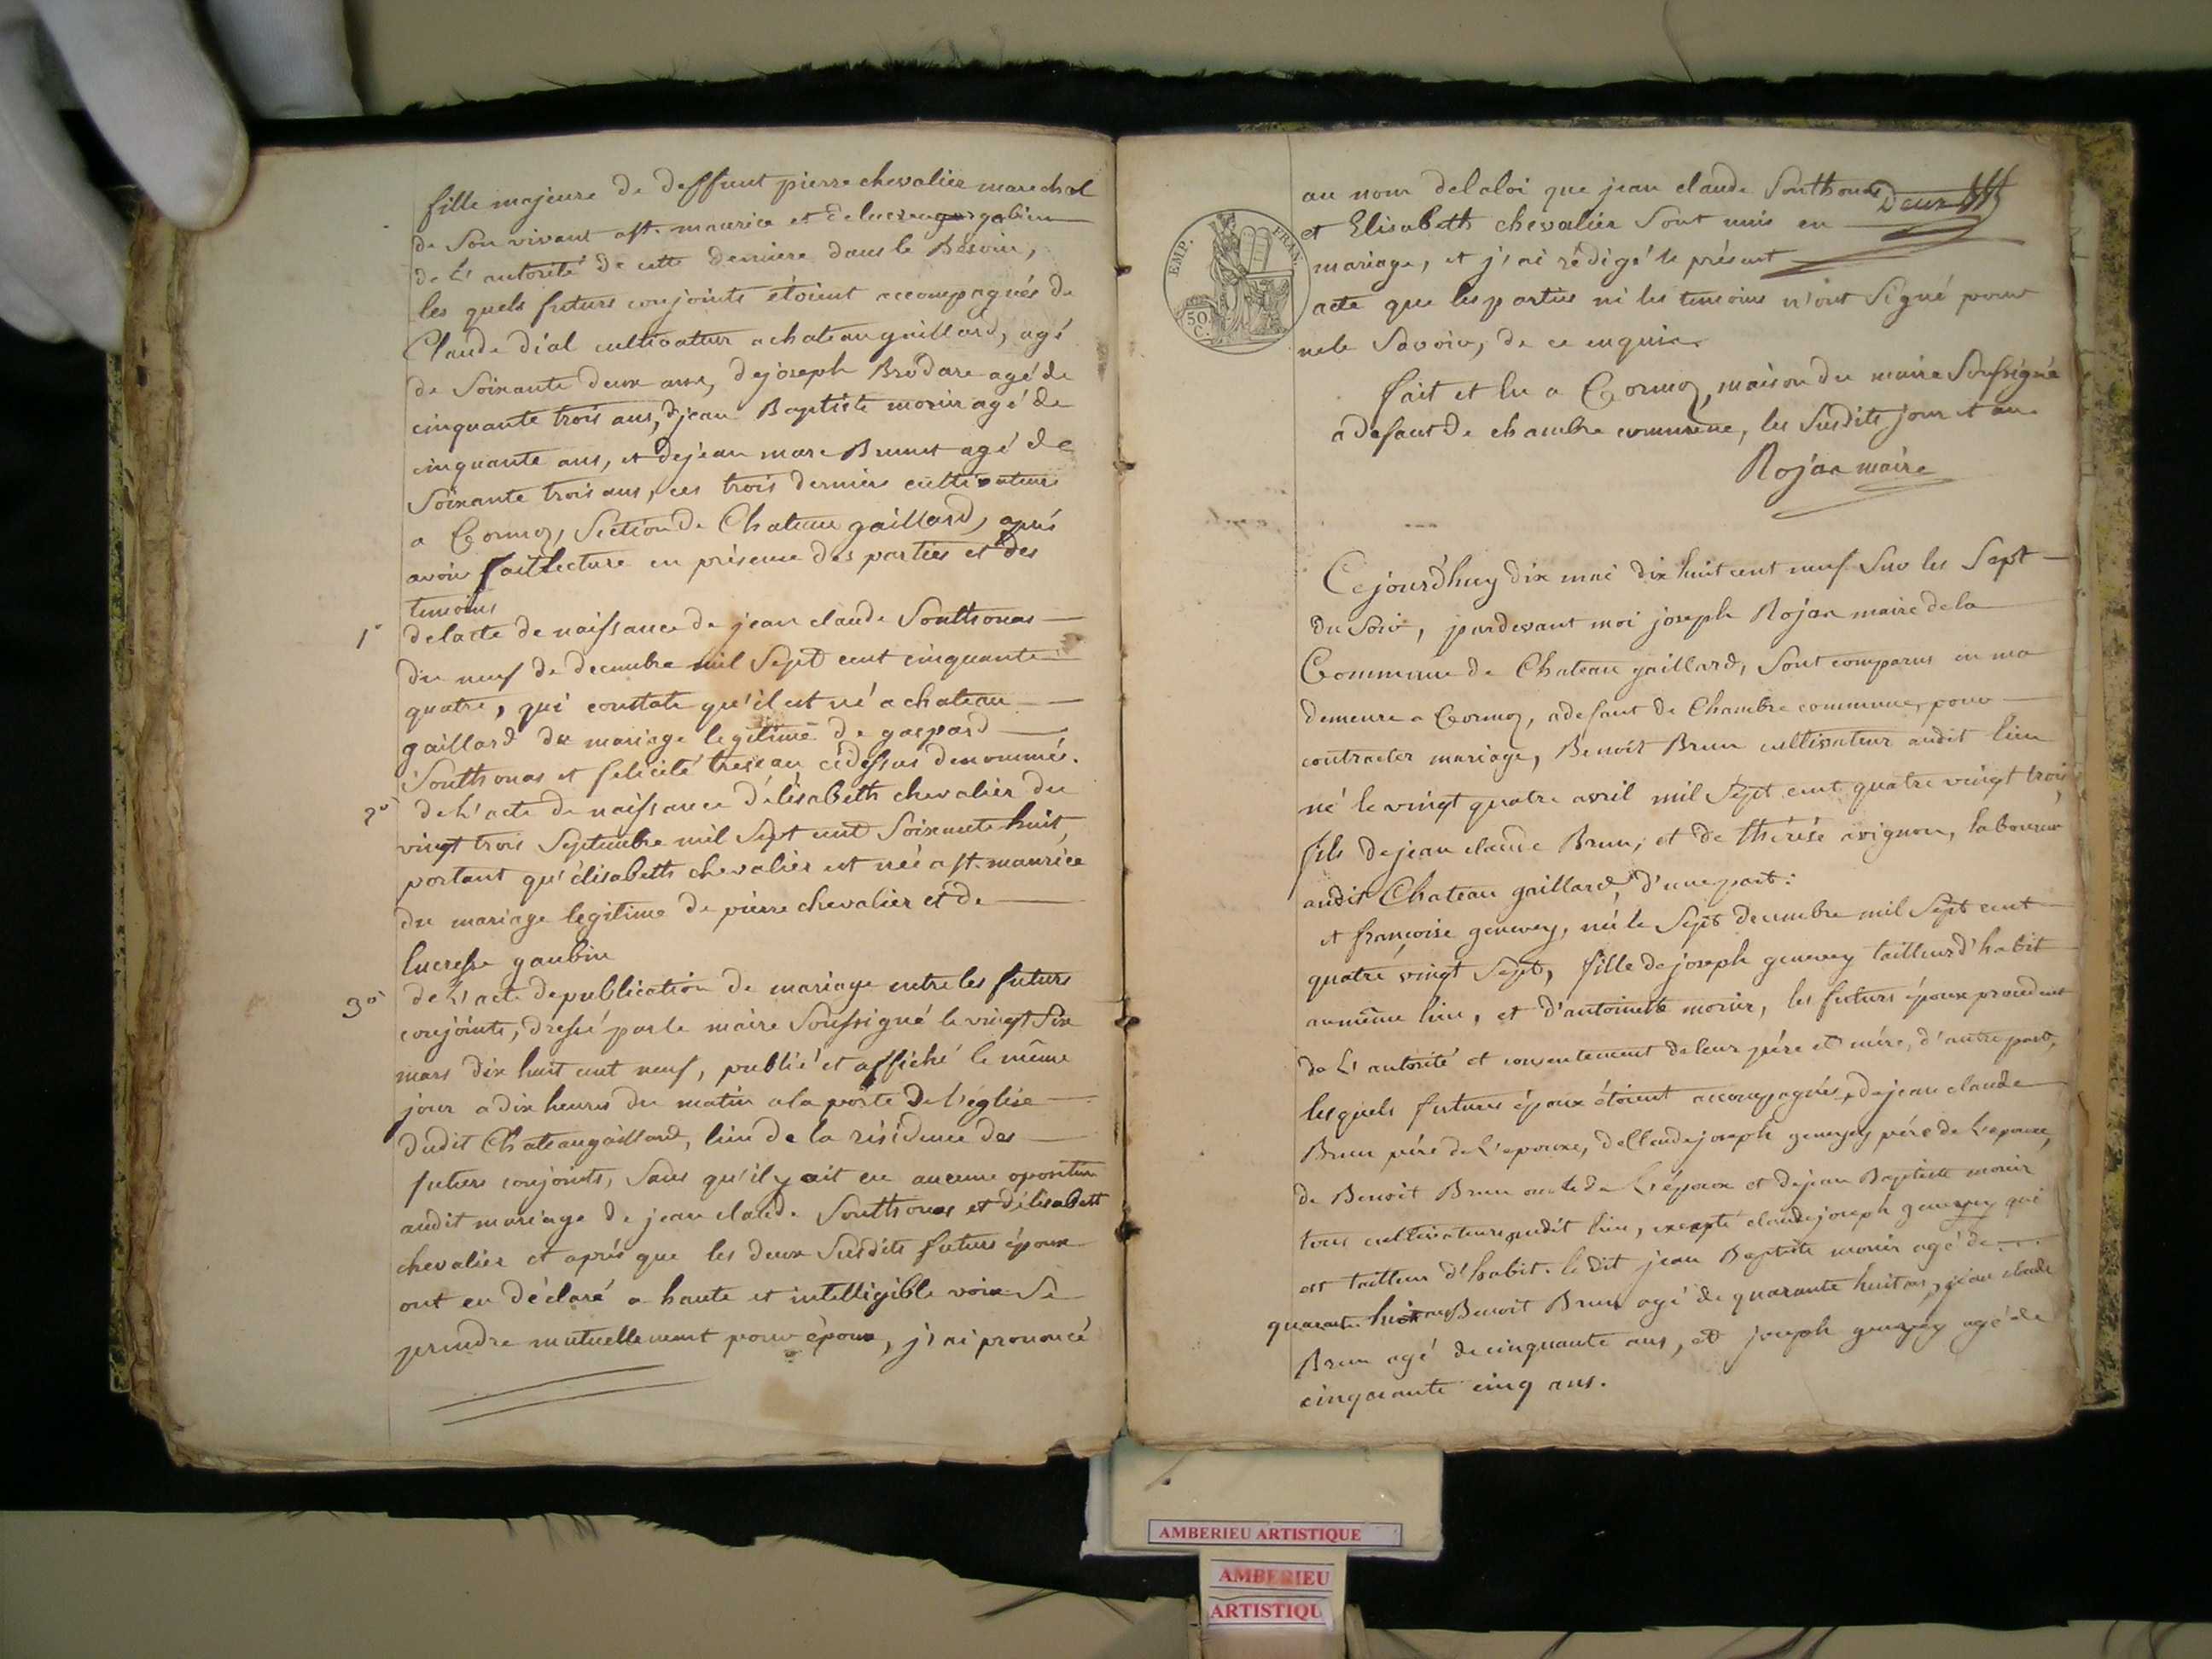 fille majeure de deffunt pierre chevalier marechal
de Son vivant a st. maurice et de lucrece gobin
de L'autorité de cette derniere dans le Besoin,
les quels futurs conjoints étoient accompagnés de
Claude dial cultivateur a chateaugaillard, agé
de Soixante deux ans, de joseph Brodare agé de
cinquante trois ans, de jean Baptiste monin agé de
cinquante ans, et de jean marc Brunet agé de
Soixante trois ans, ces trois derniers cultivateurs
a Cormoz, Section de Chateau gaillard, aprés
avoir fait lecture en présence des parties et des
temoins
1° de lacte de naissance de jean claude Southonas
du neuf de decembre mil Sept cent cinquante
quatre, qui constate qu'il est né a chateau
gaillard du mariage legitime de gaspard
Southonas et felicité treseau cidessus denommés.
2° de L'acte de naissance d'élisabeth chevalier du
vingt trois Septembre mil Sept cent Soixante huit,
portant qu'élisabeth chevalier est née a st. maurice
du mariage legitime de pierre chevalier et de
lucresse gaubin
3° de L'acte de publication de mariage entre les futurs
conjoints, dressé par le maire Soussigné le vingt Six
mars dix huit cent neuf, publié et affiché le même
jour a dix heures du matin a la porte de l'église
dudit Chateaugaillard, lieu de la résidence des
futurs conjoints, Sans qu'il y ait eu aucune oposition
audit mariage de jean claude Southonas et d'élisabeth
chevalier et aprés que les deux Susdits futurs époux
ont eu déclaré a haute et intelligible voix Se
prendre mutuellement pour époux, j'ai prononcé
au nom de la loi que jean claude Southonas deux
et Elisabeth chevalier Sont unis en
mariage, et j'ai rédigé le présent
acte que les parties ni les temoins n'ont Signé pour
ne le Savoir, de ce enquis.
EMP. FRAN.
50 C.
fait et lu a Cormoz, maison du maire Soussigné
a defaut de chambre commune, les Susdits jour et an
Rojar maire
Cejourd'huy dix mai dix huit cent neuf Sur les Sept
du Soir, pardevant moi joseph Rojar maire de la
Commune de Chateau gaillard, Sont comparus en ma
demeure a Cormoz, a defaut de Chambre commune, pour
contracter mariage, Benoit Brun cultivateur audit lieu
né le vingt quatre avril mil Sept cent quatre vingt trois,
fils de jean claude Brun, et de thérése avignon, laboureur
audit Chateau gaillard, d'une part:
et françoise genevey, née le Sept decembre mil Sept cent
quatre vingt Sept, fille de joseph genevey tailleur d'habit
au même lieu, et d'antoinette monin, les futurs époux procedant
de L'autorité et consentement de leur pére et mére, d'autre part,
lesquels futurs époux étoient accompagnés, de jean claude
Brun pére de L'epoux, de Claude joseph genevey pére de L'epouse,
de Benoit Brun oncle de L'époux et de jean Baptiste monin
tous cultivateurs audit lieu, excepté claude joseph genevey qui
est tailleur d'habit. le dit jean Baptiste monin agé de
quarante huit ans Benoit Brun agé de quarante huit ans, jean claude
Brun agé de cinquante ans, et joseph genevey agé de
cinquante cinq ans.
AMBERIEU ARTISTIQUE
AMBERIEU
ARTISTIQU